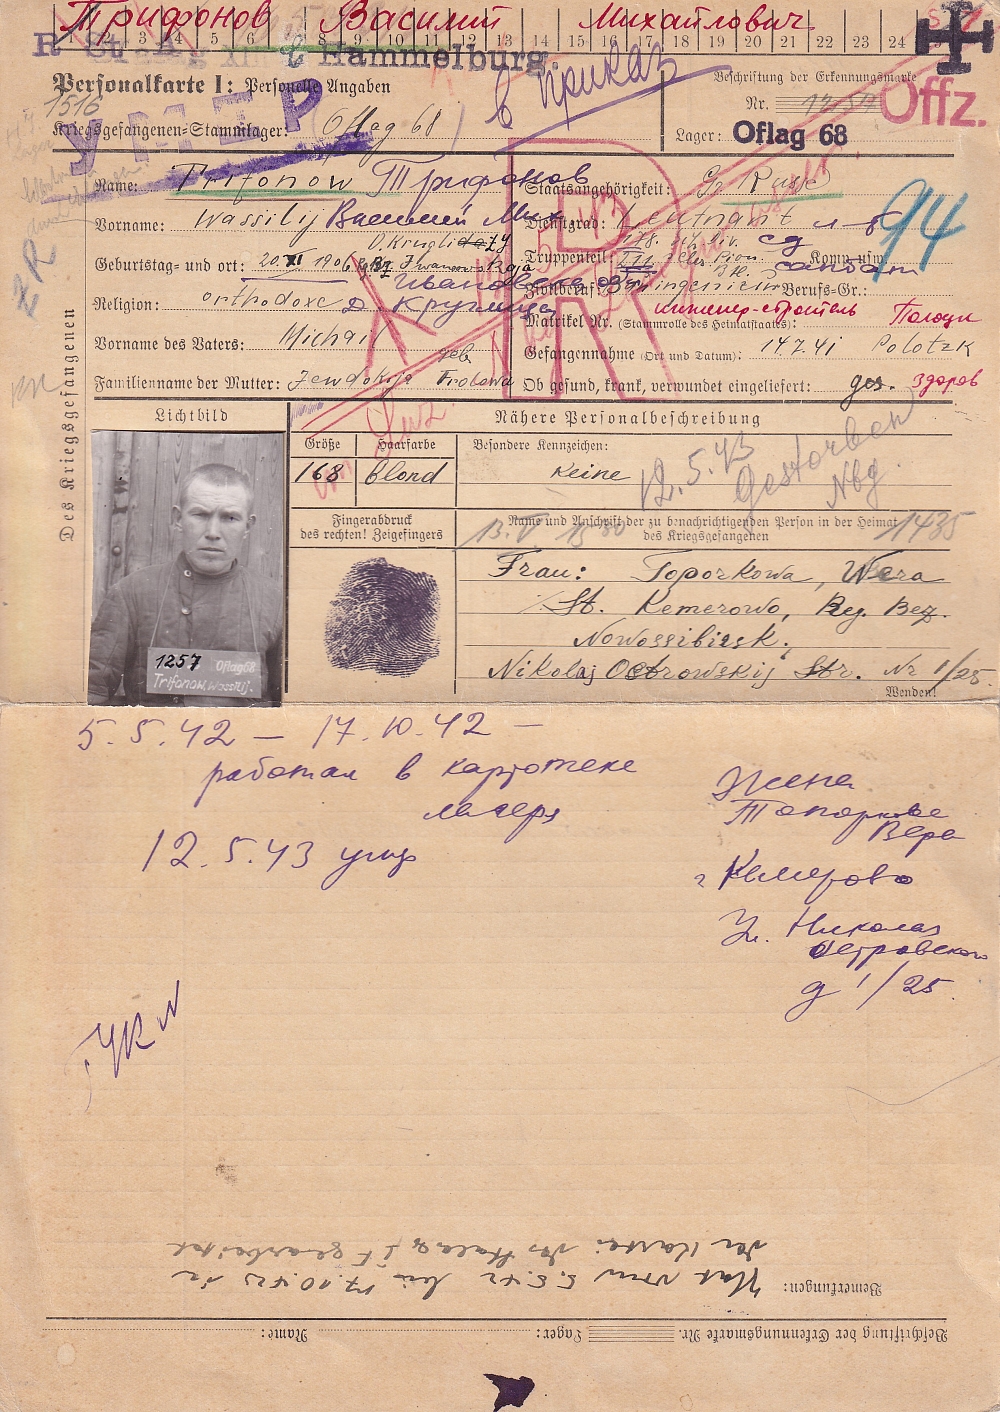 Трифонов Василий Михайлович
2 3 4 6 8 9 10 11 12 13 14 15 16 17 18 19 20 21 22 23 24
Hammelburg.
Personalkarte I: Personelle Angaben
Beschriftung der Erkennungsmarte
1516
Nr.
в приказ
Offz.
Kriegsgefangenen-Stammlager: Oflag 68
Lager: Oflag 68
УМЕР
Name: Trifonow Трифонов
Staatsangehörigkeit: Gr. Russe
94
Vorname: Wassilij Василий Мих
Dienstgrad: Leutnant л-т
D. Kruglidazy
Geburtstag- und ort: 20.XI 1906 Iwanowskaja
Truppenteil: Komp. usw.
Ивановская
санбат
Religion: orthodoxe д Круглица
Zivilberuf: Bauingenieur Berufs-Gr.:
инженер-строитель
Matrikel Nr. (Stammrolle des Heimatstaates):
Полоцк
Vorname des Vaters: Michail
Gefangennahme (Ort und Datum): 14.7.41 Polotzk
geb.
Familienname der Mutter: Jewdokija Frolowa
Ob gesund, krank, verwundet eingeliefert: ges. здоров
Des Kriegsgefangenen
Lichtbild
Nähere Personalbeschreibung
Größe Haarfarbe Besondere Kennzeichen:
168 blond Keine
12.5.43
Gestorben
Nbg.
Fingerabdruck
des rechten! Zeigefingers
Name und Anschrift der zu benachrichtigenden Person in der Heimat
des Kriegsgefangenen
1435
Frau: Toporkowa, Wera
St. Kemerowo, Reg. Bez.
Nowossibirsk,
Nikolaj Ostrowskij Str. Nr 1/25
Wenden!
1257 Oflag 68
Trifonow, Wassilij.
5.5.42 — 17.10.42 —
работал в картотеке
лагеря
12.5.43 умер
Жена
Топоркова
Вера
г Кемерово
Ул. Николая
Островского
д 1/25
Bemerkungen: Hat vom 5.5.42 bis 17.10.42 in
der Kartei des gearbeitet
Beschriftung der Erkennungsmarke Nr. Lager: Name: